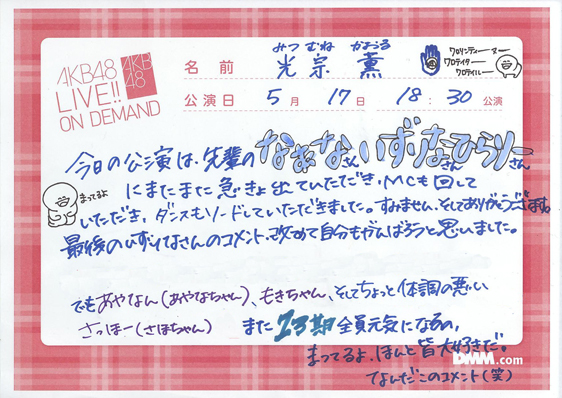 AKB48
LIVE!!
ON DEMAND
AKB
48
名前
みつ むね かおる
光宗 薫
ワロリンティーヌー
ワロテイター
ワロテイルー
公演日 5月 17日 18:30 公演
今日の公演は、先輩の なぁなさん いずりなさん ひらりーさん
にまたまた急きょ出ていただき、MCも回して
まってるよ
いただき、ダンスもリードしていただきました。すみません、そしてありがとうございます。
最後のいずりなさんのコメント、改めて自分もがんばろうと思いました。
でもあやなん(あやなちゃん)、もきちゃん、そしてちょっと体調の悪い
さっほー(さほちゃん) また 13期 全員元気になるの、
まってるよ、ほんと皆大好きだ。
DMM.com
なんだこのコメント(笑)